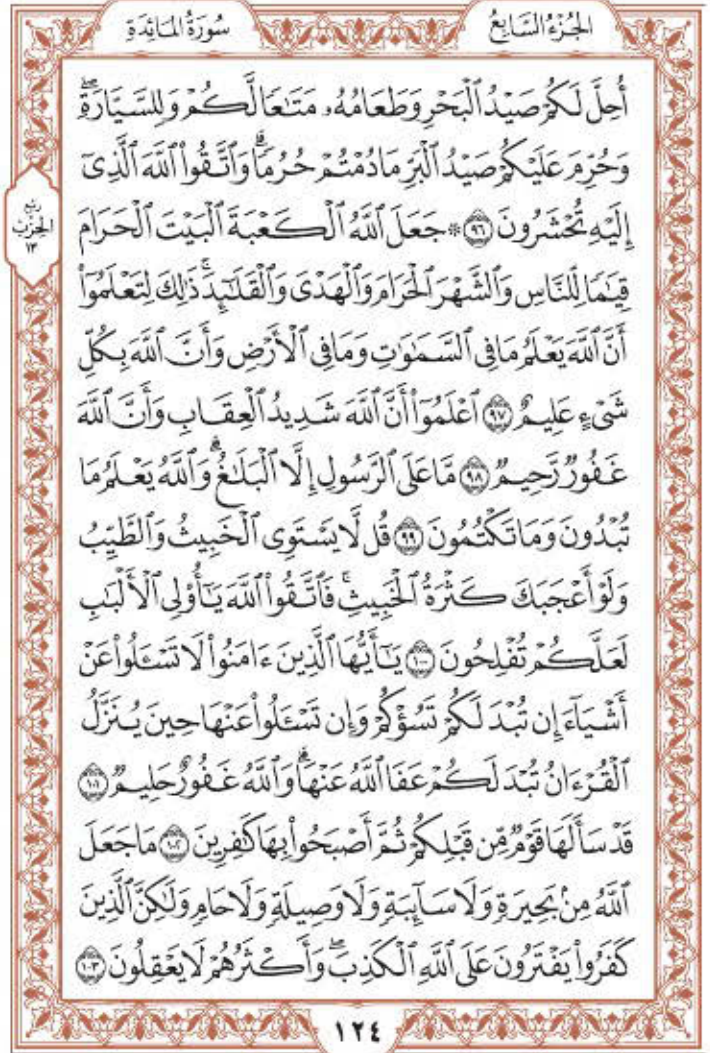 الجُزْءُ السَّابِعُ
سُورَةُ المَائِدَةِ
أُحِلَّ لَكُمْ صَيْدُ ٱلْبَحْرِ وَطَعَامُهُۥ مَتَٰعًا لَّكُمْ وَلِلسَّيَّارَةِۖ
وَحُرِّمَ عَلَيْكُمْ صَيْدُ ٱلْبَرِّ مَا دُمْتُمْ حُرُمًاۗ وَٱتَّقُوا۟ ٱللَّهَ ٱلَّذِىٓ
إِلَيْهِ تُحْشَرُونَ ٩٦ ۞ جَعَلَ ٱللَّهُ ٱلْكَعْبَةَ ٱلْبَيْتَ ٱلْحَرَامَ
قِيَٰمًا لِّلنَّاسِ وَٱلشَّهْرَ ٱلْحَرَامَ وَٱلْهَدْىَ وَٱلْقَلَٰٓئِدَۚ ذَٰلِكَ لِتَعْلَمُوٓا۟
أَنَّ ٱللَّهَ يَعْلَمُ مَا فِى ٱلسَّمَٰوَٰتِ وَمَا فِى ٱلْأَرْضِ وَأَنَّ ٱللَّهَ بِكُلِّ
شَىْءٍ عَلِيمٌ ٩٧ ٱعْلَمُوٓا۟ أَنَّ ٱللَّهَ شَدِيدُ ٱلْعِقَابِ وَأَنَّ ٱللَّهَ
غَفُورٌ رَّحِيمٌ ٩٨ مَّا عَلَى ٱلرَّسُولِ إِلَّا ٱلْبَلَٰغُۗ وَٱللَّهُ يَعْلَمُ مَا
تُبْدُونَ وَمَا تَكْتُمُونَ ٩٩ قُل لَّا يَسْتَوِى ٱلْخَبِيثُ وَٱلطَّيِّبُ
وَلَوْ أَعْجَبَكَ كَثْرَةُ ٱلْخَبِيثِۚ فَٱتَّقُوا۟ ٱللَّهَ يَٰٓأُو۟لِى ٱلْأَلْبَٰبِ
لَعَلَّكُمْ تُفْلِحُونَ ١٠٠ يَٰٓأَيُّهَا ٱلَّذِينَ ءَامَنُوا۟ لَا تَسْـَٔلُوا۟ عَنْ
أَشْيَآءَ إِن تُبْدَ لَكُمْ تَسُؤْكُمْ وَإِن تَسْـَٔلُوا۟ عَنْهَا حِينَ يُنَزَّلُ
ٱلْقُرْءَانُ تُبْدَ لَكُمْ عَفَا ٱللَّهُ عَنْهَاۗ وَٱللَّهُ غَفُورٌ حَلِيمٌ ١٠١
قَدْ سَأَلَهَا قَوْمٌ مِّن قَبْلِكُمْ ثُمَّ أَصْبَحُوا۟ بِهَا كَٰفِرِينَ ١٠٢ مَا جَعَلَ
ٱللَّهُ مِنۢ بَحِيرَةٍ وَلَا سَآئِبَةٍ وَلَا وَصِيلَةٍ وَلَا حَامٍ وَلَٰكِنَّ ٱلَّذِينَ
كَفَرُوا۟ يَفْتَرُونَ عَلَى ٱللَّهِ ٱلْكَذِبَۖ وَأَكْثَرُهُمْ لَا يَعْقِلُونَ ١٠٣
رُبْع
الحِزْب
١٣
١٢٤